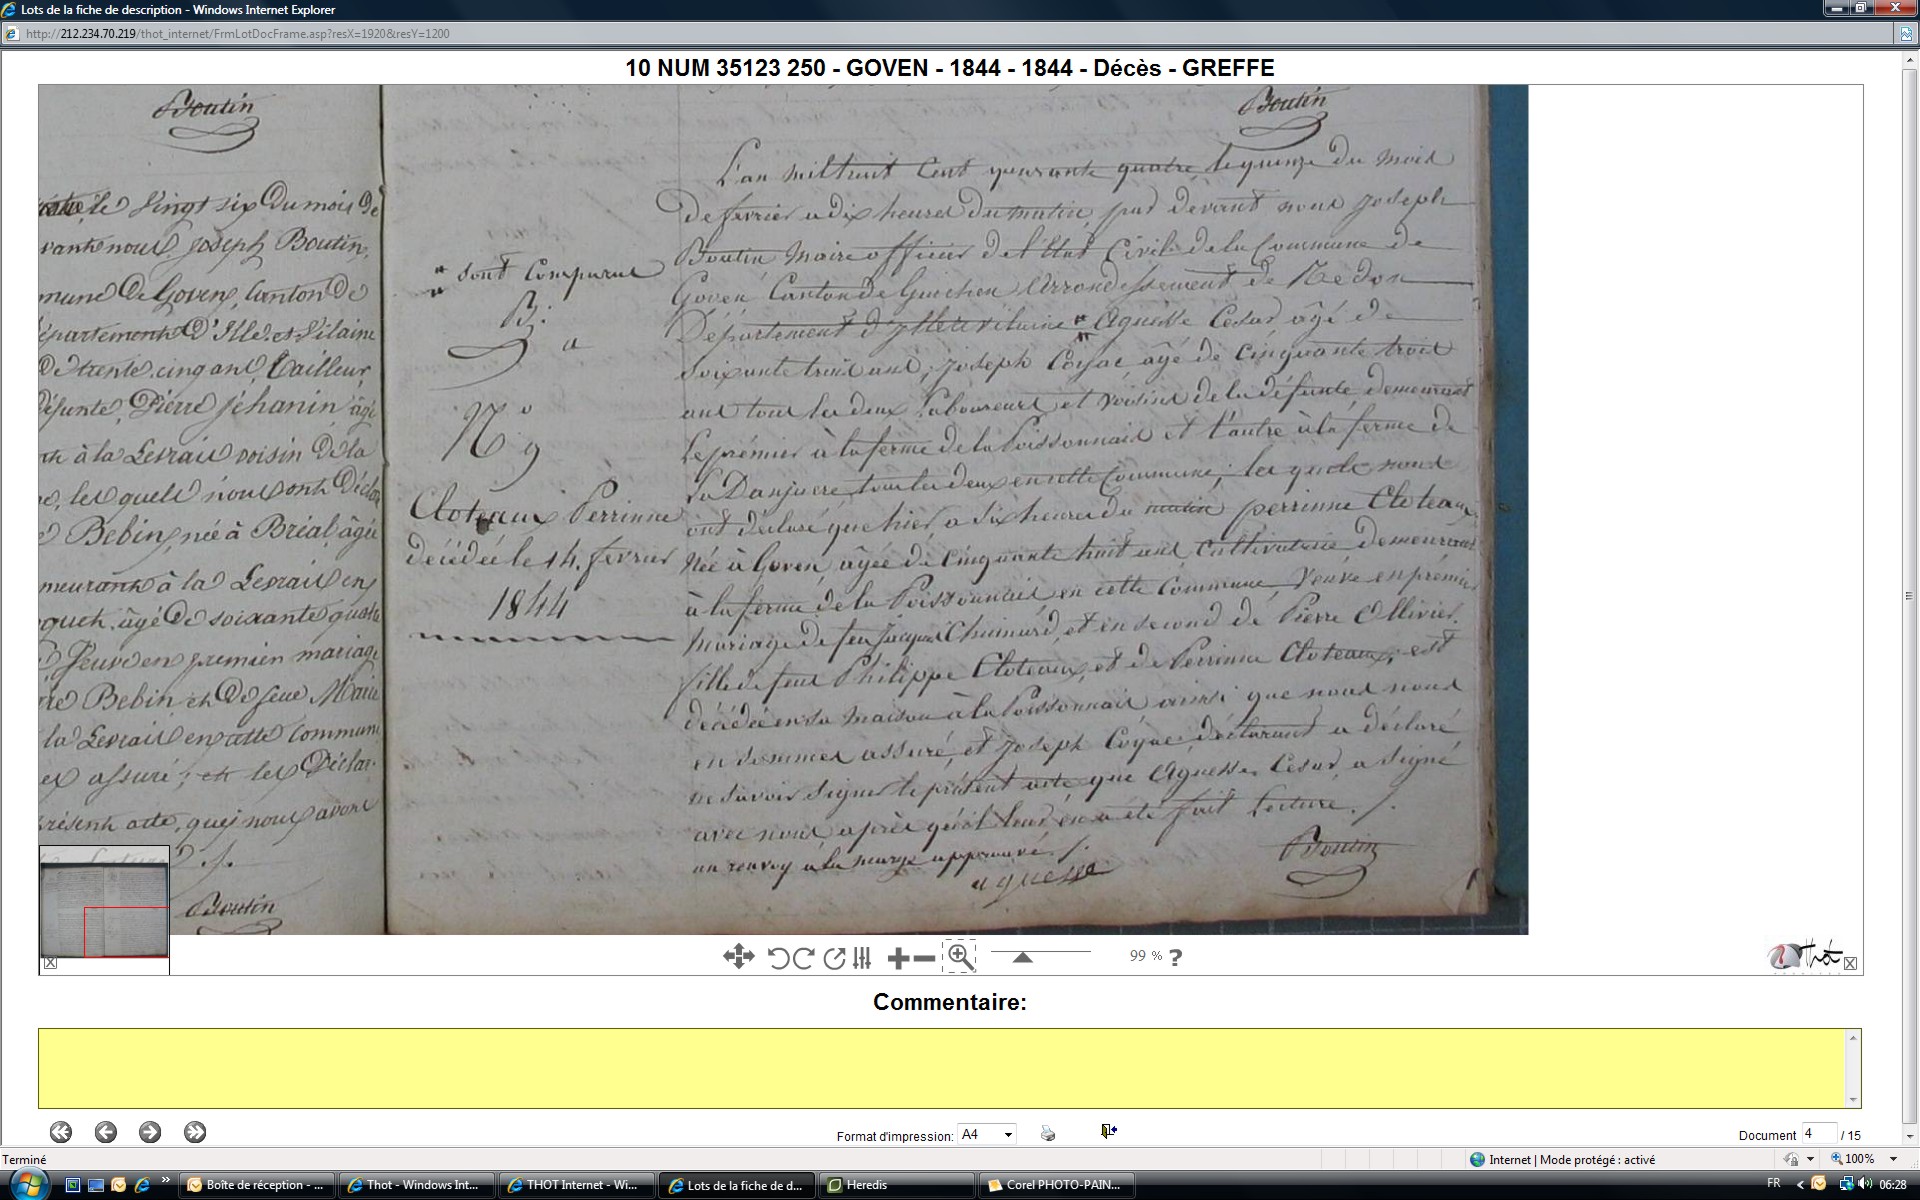 Lots de la fiche de description - Windows Internet Explorer
http://212.234.70.219/thot_internet/FrmLotDocFrame.asp?resX=1920&resY=1200
10 NUM 35123 250 - GOVEN - 1844 - 1844 - Décès - GREFFE
Boutin
le Vingt six Du mois de
vant nous Joseph Boutin,
mune De Goven, Canton De
épartement D'Ille et Vilaine
De trente cinq ans, Tailleur,
défunte, Pierre Jéhanin âgé
à la Lesrais voisin De la
les quels nous ont Déclar
Bebin, née à Bréal, âgée
meurante à la Lesrais en
âgé De soixante quatre
Veuve en premier mariage
Bebin et De feue Marie
la Lesrais en cette Commune
assuré; et les Déclar
présent acte, que nous avons
Lecture ./.
Boutin
Boutin
L'an mil huit Cent quarante quatre, le quinze du mois
De fevrier a dix heures du matin, par devant nous Joseph
Boutin Maire officier de l'Etat Civil de la Commune de
Goven Canton de Guichen Arrondissement de Redon
Département d'Ille et vilaine Aguesse Cesar âgé de
soixante trois ans, Joseph Coyac âgé de cinquante trois
ans tous les deux Laboureurs et voisins de la défunte, demeurant
le prémier à la ferme de la Poissonnais et l'autre à la ferme de
la Danjuere tous les deux en cette Commune; les quels nous
ont déclaré que hier, a six heures du matin perrinne Cloteaux
Née à Goven, âgée de cinquante huit ans cultivatrice demeurant
à la ferme de la Poissonnais en cette Commune, Veuve en prémier
Mariage de feu Jacques Chuimard, et en second de Pierre Ollivier,
fille de feus Philippe Cloteaux, et de Perrinne Cloteaux, est
décédée en sa maison à la Poissonnais ainsi que nous nous
en sommes assuré, et Joseph Coyac déclarant a déclaré
ne savoir signer le présent acte que Aguesse Cesar, a signé
avec nous après qu'il leur en a été fait Lecture. ./.
un renvoy à la marge approuvé. ./.
aguesse
Boutin
sont Comparus
B.
N° 9
Cloteaux Perrinne
décédée le 14. fevrier
1844
99 %
?
Thot
Commentaire:
Format d'impression: A4
Document 4 / 15
Terminé
Internet | Mode protégé : activé
100%
Boîte de réception - ...
Thot - Windows Int...
THOT Internet - Wi...
Lots de la fiche de d...
Heredis
Corel PHOTO-PAIN...
FR
06:28